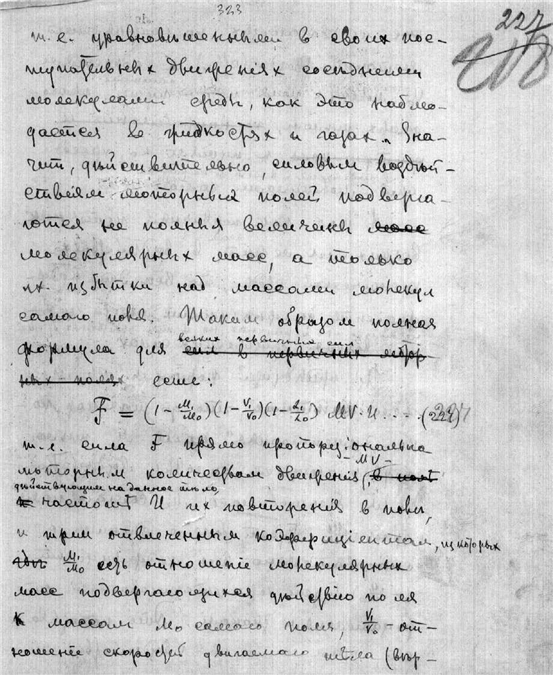 323
227
т.е. уравновѣшенными в своих пос-
тупательных движенiях соседними
молекулами среды, как это наблю-
дается в жидкостях и газах. Зна-
чит, дѣйствительно, силовым воздѣй-
ствiям моторных полей подверга-
ются не полныя величины масс
молекулярных масс, а только
их избытки над массами молекул
самого поля. Таким образом полная
всяких первичных сил
формула для сил в первичных мотор
ных полях есть:
F = (1 - M₁/M₀)(1 - V₁/V₀)(1 - L₁/L₀) MV·U .... (227)
т.е. сила F прямо пропорцiональна
- MV -
моторным количествам движенiя,
дѣйствующим на данное тѣло,
частотѣ U их повторенiя в поле,
и трем отвлеченным коэффицiентам, из которых
M₁/M₀ есть отношенiе молекулярных
масс подвергающихся дѣйствiю поля
к массам M₀ самого поля, V₁/V₀ - от-
ношенiе скоростей двигаемого тѣла (втор-